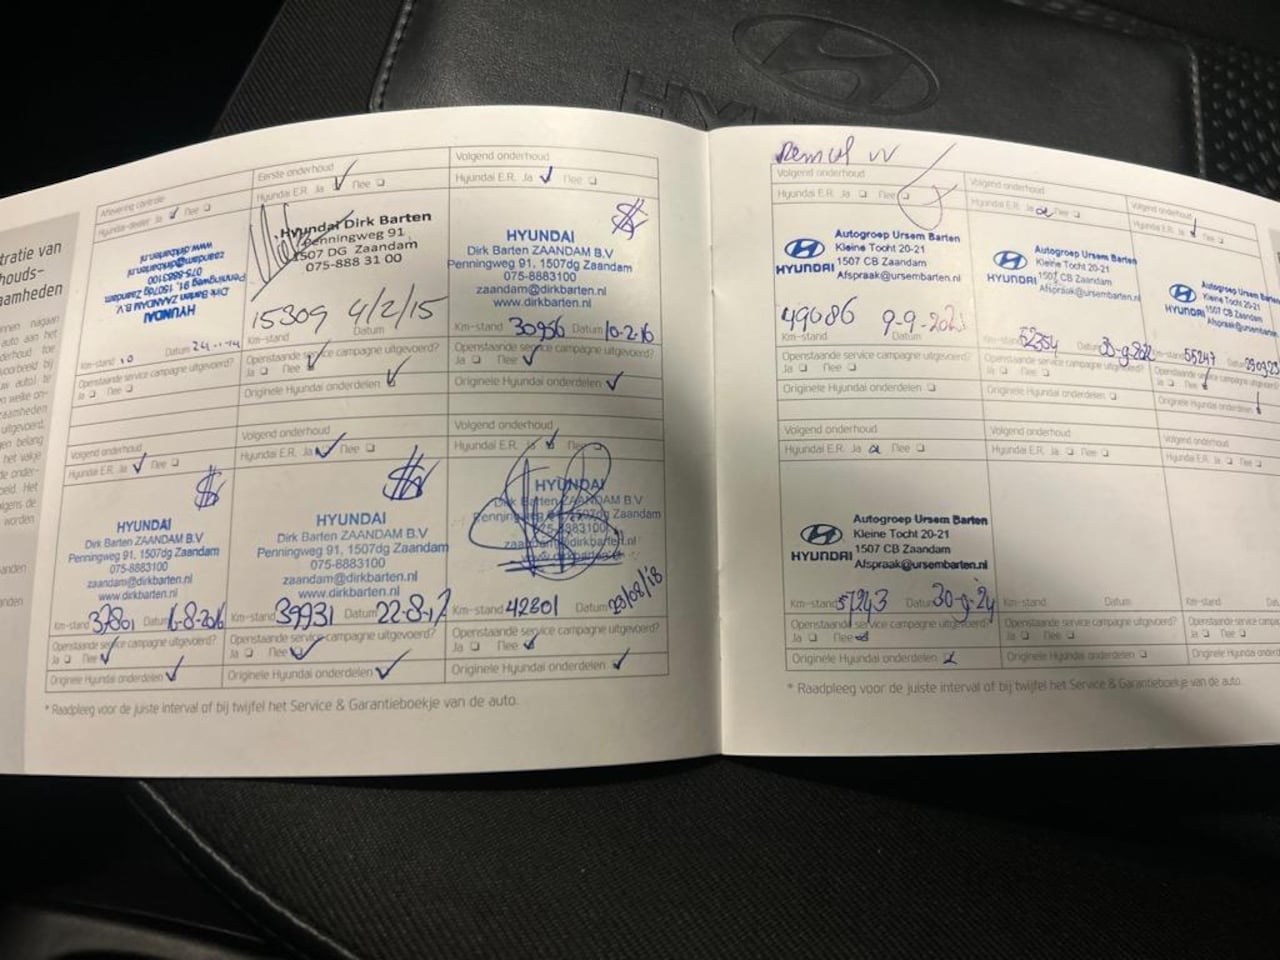 HYUNDAI
tratie van
houds-
aamheden
Aflevering controle
Hyundai-dealer Ja Nee
HYUNDAI
Dirk Barten ZAANDAM B.V
Penningweg 91, 1507dg Zaandam
075-8883100
zaandam@dirkbarten.nl
www.dirkbarten.nl
Km-stand 10 Datum
Openstaande service campagne uitgevoerd?
Ja Nee
Eerste onderhoud
Hyundai E.R. Ja Nee
Hyundai Dirk Barten
Penningweg 91
1507 DG Zaandam
075-888 31 00
15309 4/2/15
Km-stand Datum
Openstaande service campagne uitgevoerd?
Ja Nee
Originele Hyundai onderdelen
Volgend onderhoud
Hyundai E.R. Ja Nee
HYUNDAI
Dirk Barten ZAANDAM B.V
Penningweg 91, 1507dg Zaandam
075-8883100
zaandam@dirkbarten.nl
www.dirkbarten.nl
Km-stand 30956 Datum 10-2-16
Openstaande service campagne uitgevoerd?
Ja Nee
Originele Hyundai onderdelen
Volgend onderhoud
Hyundai E.R. Ja Nee
HYUNDAI
Dirk Barten ZAANDAM B.V
Penningweg 91, 1507dg Zaandam
075-8883100
zaandam@dirkbarten.nl
www.dirkbarten.nl
Km-stand 37801 Datum 16-8-2016
Openstaande service campagne uitgevoerd?
Ja Nee
Originele Hyundai onderdelen
Volgend onderhoud
Hyundai E.R. Ja Nee
HYUNDAI
Dirk Barten ZAANDAM B.V
Penningweg 91, 1507dg Zaandam
075-8883100
zaandam@dirkbarten.nl
www.dirkbarten.nl
Km-stand 39931 Datum 22-8-17
Openstaande service campagne uitgevoerd?
Ja Nee
Originele Hyundai onderdelen
Volgend onderhoud
Hyundai E.R. Ja Nee
HYUNDAI
Dirk Barten ZAANDAM B.V
Penningweg 91, 1507dg Zaandam
075-8883100
zaandam@dirkbarten.nl
www.dirkbarten.nl
Km-stand 42301 Datum 23/08/18
Openstaande service campagne uitgevoerd?
Ja Nee
Originele Hyundai onderdelen
* Raadpleeg voor de juiste interval of bij twijfel het Service & Garantieboekje van de auto.
Volgend onderhoud
Hyundai E.R. Ja Nee
HYUNDAI
Autogroep Ursem Barten
Kleine Tocht 20-21
1507 CB Zaandam
Afspraak@ursembarten.nl
49086 9-9-
Km-stand Datum
Openstaande service campagne uitgevoerd?
Ja Nee
Originele Hyundai onderdelen
Volgend onderhoud
Hyundai E.R. Ja Nee
HYUNDAI
Autogroep Ursem Barten
Kleine Tocht 20-21
1507 CB Zaandam
Afspraak@ursembarten.nl
Km-stand 52354 Datum
Openstaande service campagne uitgevoerd?
Ja Nee
Originele Hyundai onderdelen
Volgend onderhoud
Hyundai E.R. Ja Nee
HYUNDAI
Autogroep Ursem Barten
Kleine Tocht 20-21
1507 CB Zaandam
Afspraak@ursembarten.nl
Km-stand 55247 Datum
Openstaande service campagne
Ja Nee
Originele Hyundai onderdelen
Volgend onderhoud
Hyundai E.R. Ja Nee
HYUNDAI
Autogroep Ursem Barten
Kleine Tocht 20-21
1507 CB Zaandam
Afspraak@ursembarten.nl
Km-stand 57243 Datum 30-9-24
Openstaande service campagne uitgevoerd?
Ja Nee
Originele Hyundai onderdelen
Volgend onderhoud
Hyundai E.R. Ja Nee
Km-stand Datum
Openstaande service campagne uitgevoerd?
Ja Nee
Originele Hyundai onderdelen
Volgend onderhoud
Hyundai E.R. Ja Nee
Km-stand
Openstaande service
Ja Nee
Originele Hyundai
* Raadpleeg voor de juiste interval of bij twijfel het Service & Garantieboekje van de auto.